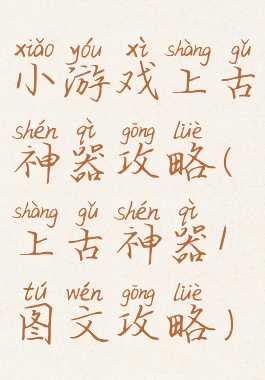 xiǎo yóu xì shàng gǔ
小游戏上古
shén qì gōng lüè
神器攻略(
shàng gǔ shén qì
上古神器/
tú wén gōng lüè
图文攻略)